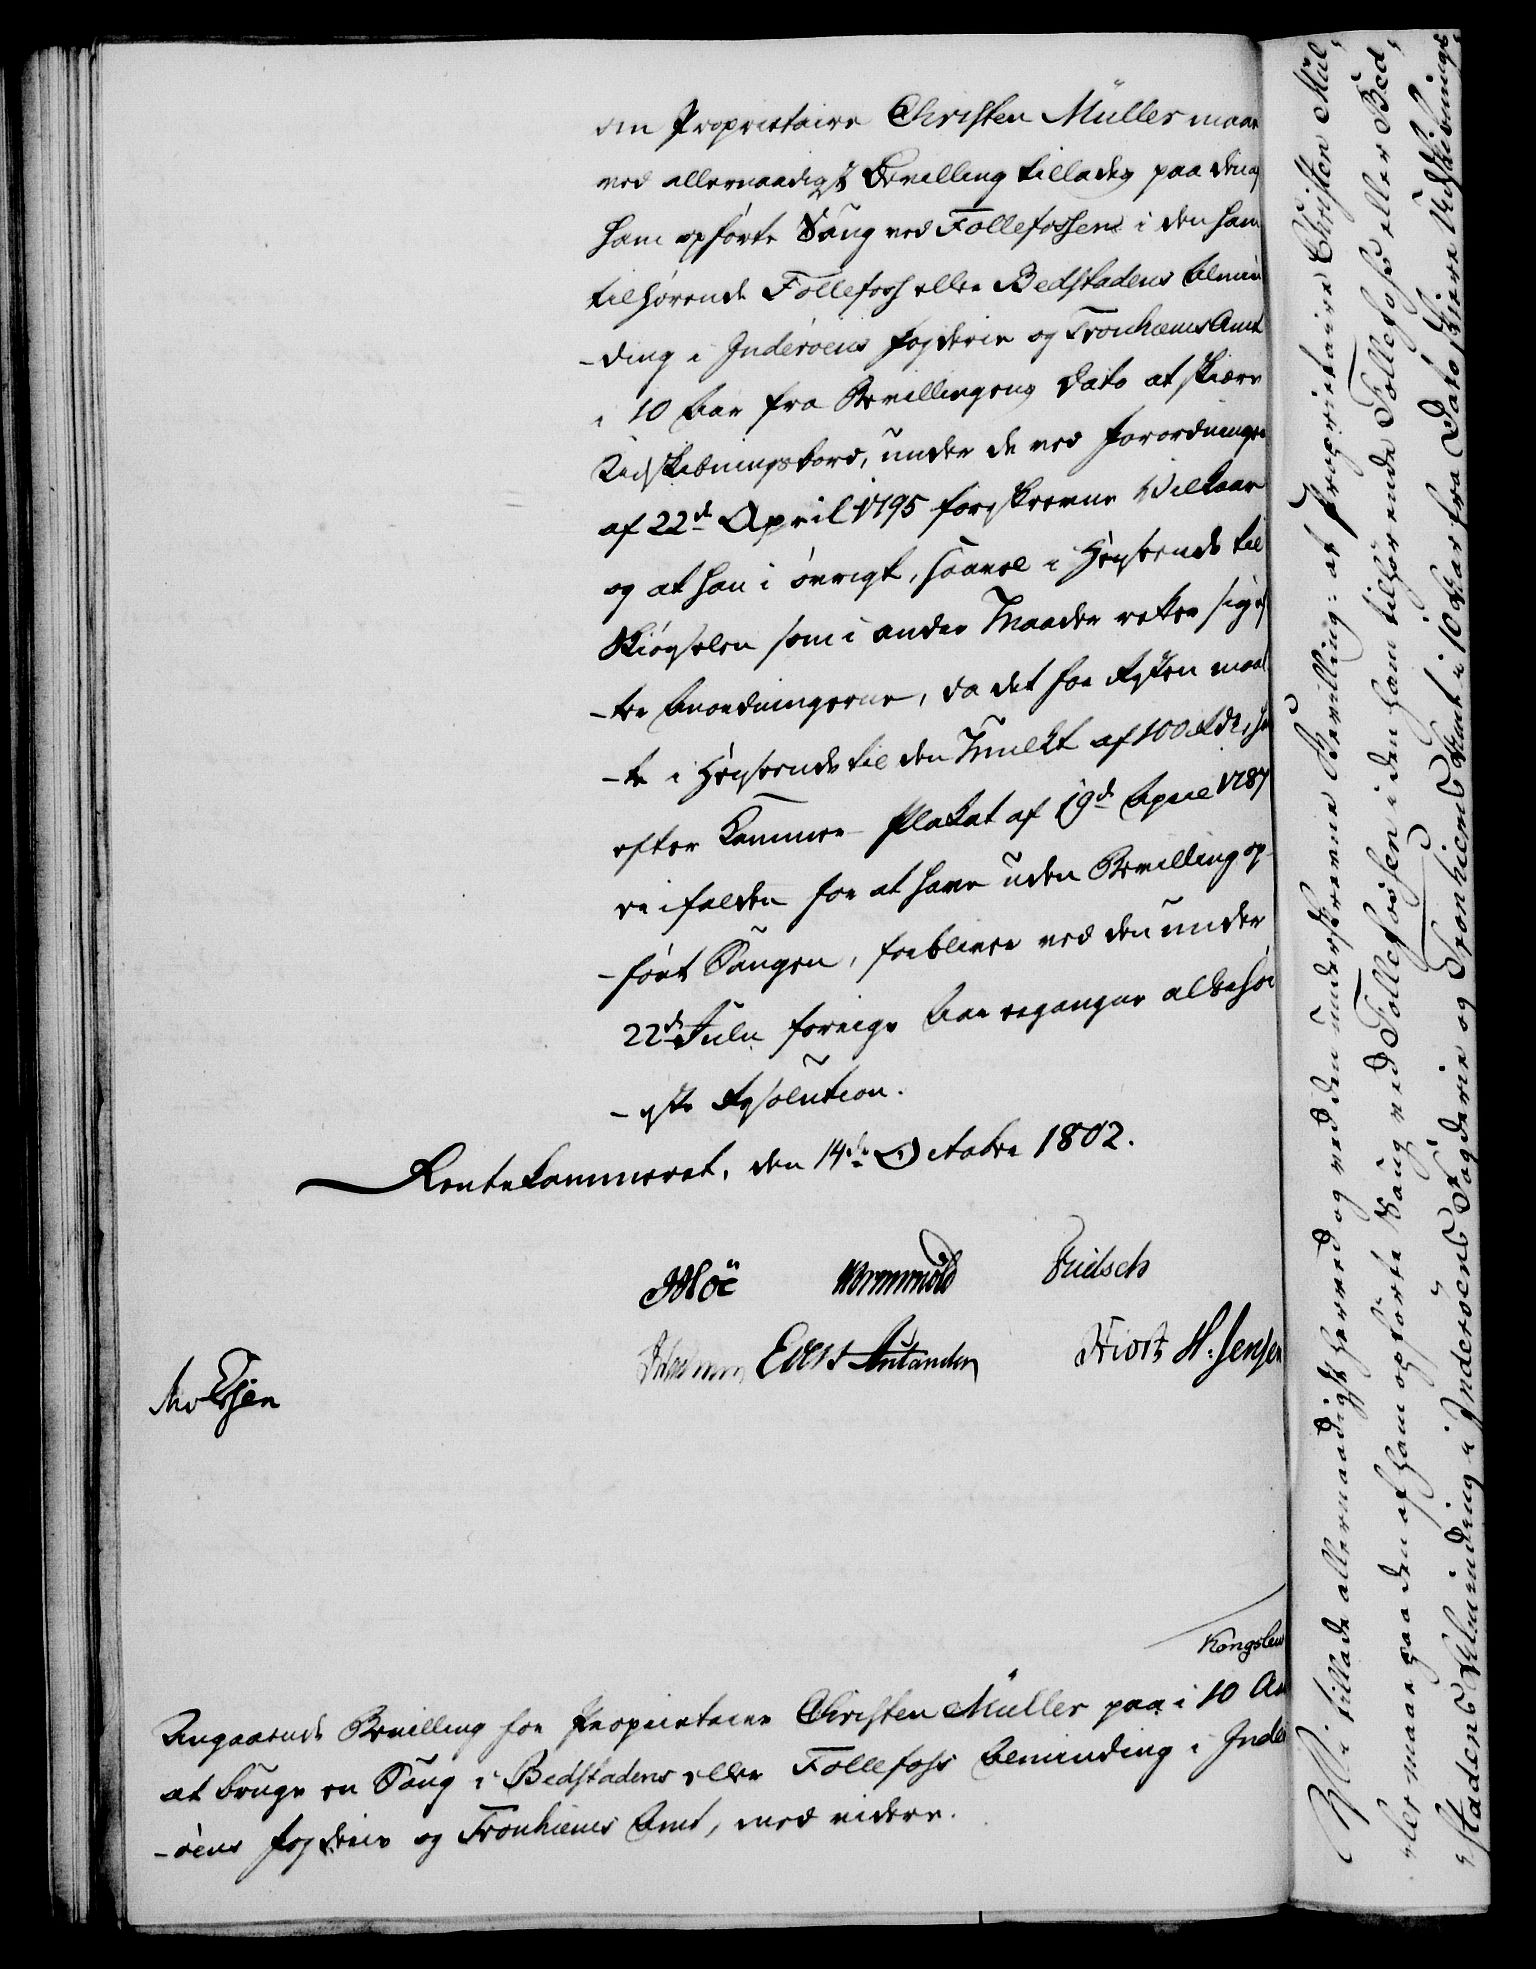 om Proprietaire Christen Müller maae
ved allernaadigst Bevilling tillades paa den af
ham opførte Saug ved Follefossen i den ham
tilhørende Follefoss eller Bedstadens Almin
-ding i Inderøens Fogderie og Tronhiems Amt
i 10 Aar fra Bevillingens Dato at skiære
Udskibningsbord, under de ved Forordningen
af 22de April 1795 foreskrevne Vilkaar
og at han i øvrigt, saavel i Henseende til
Skiøgselen som i andre Maader retter sig ef
-ter Anordningerne, da det for Resten maa
-te i Henseende til den Mulkt af 100 Rdr, han
efter Kammer Plakat af 19de April 1787
er ifalden for at have uden Bevilling op-
-ført Saugen, forbliver ved den under
22de Julii forrige Aar ergangne allerhøi
-este Resolution.
Rentekammeret, den 14de Octobr 1802.
Moe Wormskiold Fridsch
Evers Hiort H: Jensen
Kongslew
Angaaende Bevilling for Proprietaire Christen Müller paa i 10 Aar
at bruge en Saug i Bedstadens eller Follefoss Alminding i Inder
-øens Fogderie og Tronhiems Amt, med videre.
Vi tillade allernaadigst herved og ved den underskrevne Bevilling: at Proprietaire Christen Mül,
,ler maae paa den af ham opførte Saug ved Follefossen i den ham tilhørende Follefoss eller Bed,
,stadens Alminding i Inderøens Fogderie og Tronhiems Amt i 10 Aar fra Dato skiære Udskibnings,